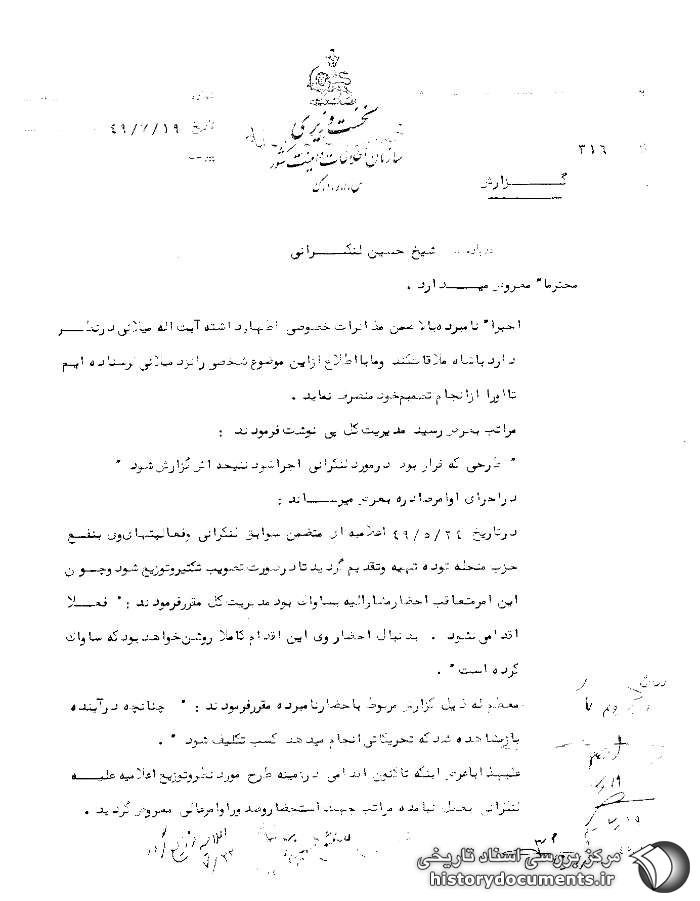 نخست وزیری
سازمان اطلاعات و امنیت کشور
س.ا.و.ا.ک
تاریخ ۴۹/۷/۱۹
پیوست
۳۱۶
گـــزارش
درباره شیخ حسین لنکـــرانی
محترما" معروض میـــدارد .
اخیرا" نامبرده بالا ضمن مذاکرات خصوصی اظهار داشته آیت اله میلانی در نظـر
دارد با شاه ملاقات کند و ما با اطلاع از این موضوع شخصی را نزد میلانی فرستاده ایم
تا او را از انجام تصمیم خود منصرف نماید .
مراتب بعرض رسید مدیریت کل پی نوشت فرمودند :
" طرحی که قرار بود در مورد لنکرانی اجرا شود نتیجه اش گزارش شود "
در اجرای اوامر صادره بعرض میرســـاند :
در تاریخ ۴۹/۵/۲۴ اعلامیه ای متضمن سوابق لنکرانی و فعالیتهای وی بنفـع
حزب منحله توده تهیه و تقدیم گردید تا در صورت تصویب تکثیر و توزیع شود و چـون
این امر متعاقب احضار مشارالیه بساواک بود مدیریت کل مقرر فرمودند : " فعـلا
اقدامی نشود . بدنبال احضار وی این اقدام کاملا روشن خواهد بود که ساواک
کرده است " .
معظم له ذیل گزارش مربوط باحضار نامبرده مقرر فرمودند : " چنانچه در آینده
باز مشاهده شد که تحریکاتی انجام میدهد کسب تکلیف شود " .
علیهذا با عرض اینکه تاکنون اقدامی در زمینه طرح مورد نظر و توزیع اعلامیه علیـه
لنکرانی بعمل نیامده مراتب جهت استحضار و صدور اوامر عالی معروض گردید .
۷/۱۹
مرکز بررسی اسناد تاریخی
historydocuments.ir